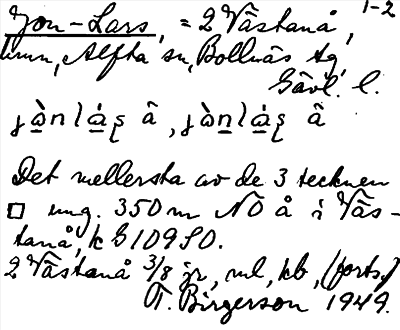 Jon-Lars, = 2 Västanå, 1-2
hmn, Alfta sn, Bollnäs tg,
Gävl. l.
Det mellersta av de 3 tecknen
□ ung. 350 m NO å i Väs-
tanå, k G109SO.
2 Västanå 3/8 jr, ml, kb, (forts.)
T. Birgerson 1949.